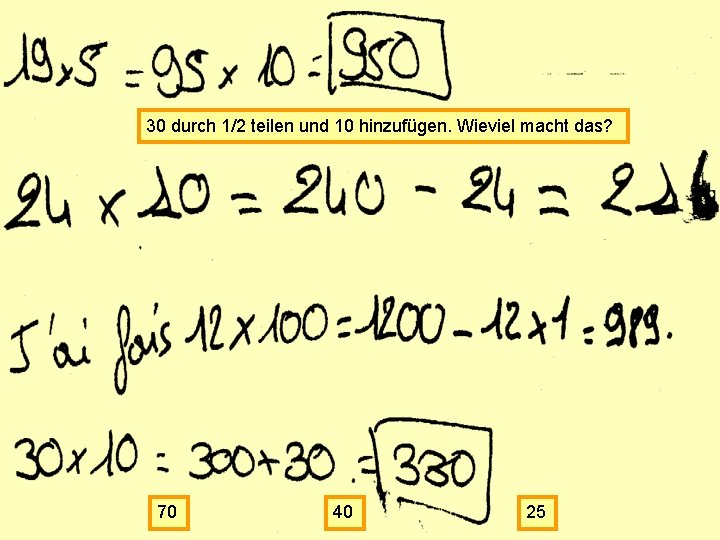 19 x 5 = 95 x 10 = 950
30 durch 1/2 teilen und 10 hinzufügen. Wieviel macht das?
24 x 10 = 240 - 24 = 216
J'ai fais 12 x 100 = 1200 - 12 x 1 = 989.
30 x 10 = 300 + 30. = 330
70 40 25